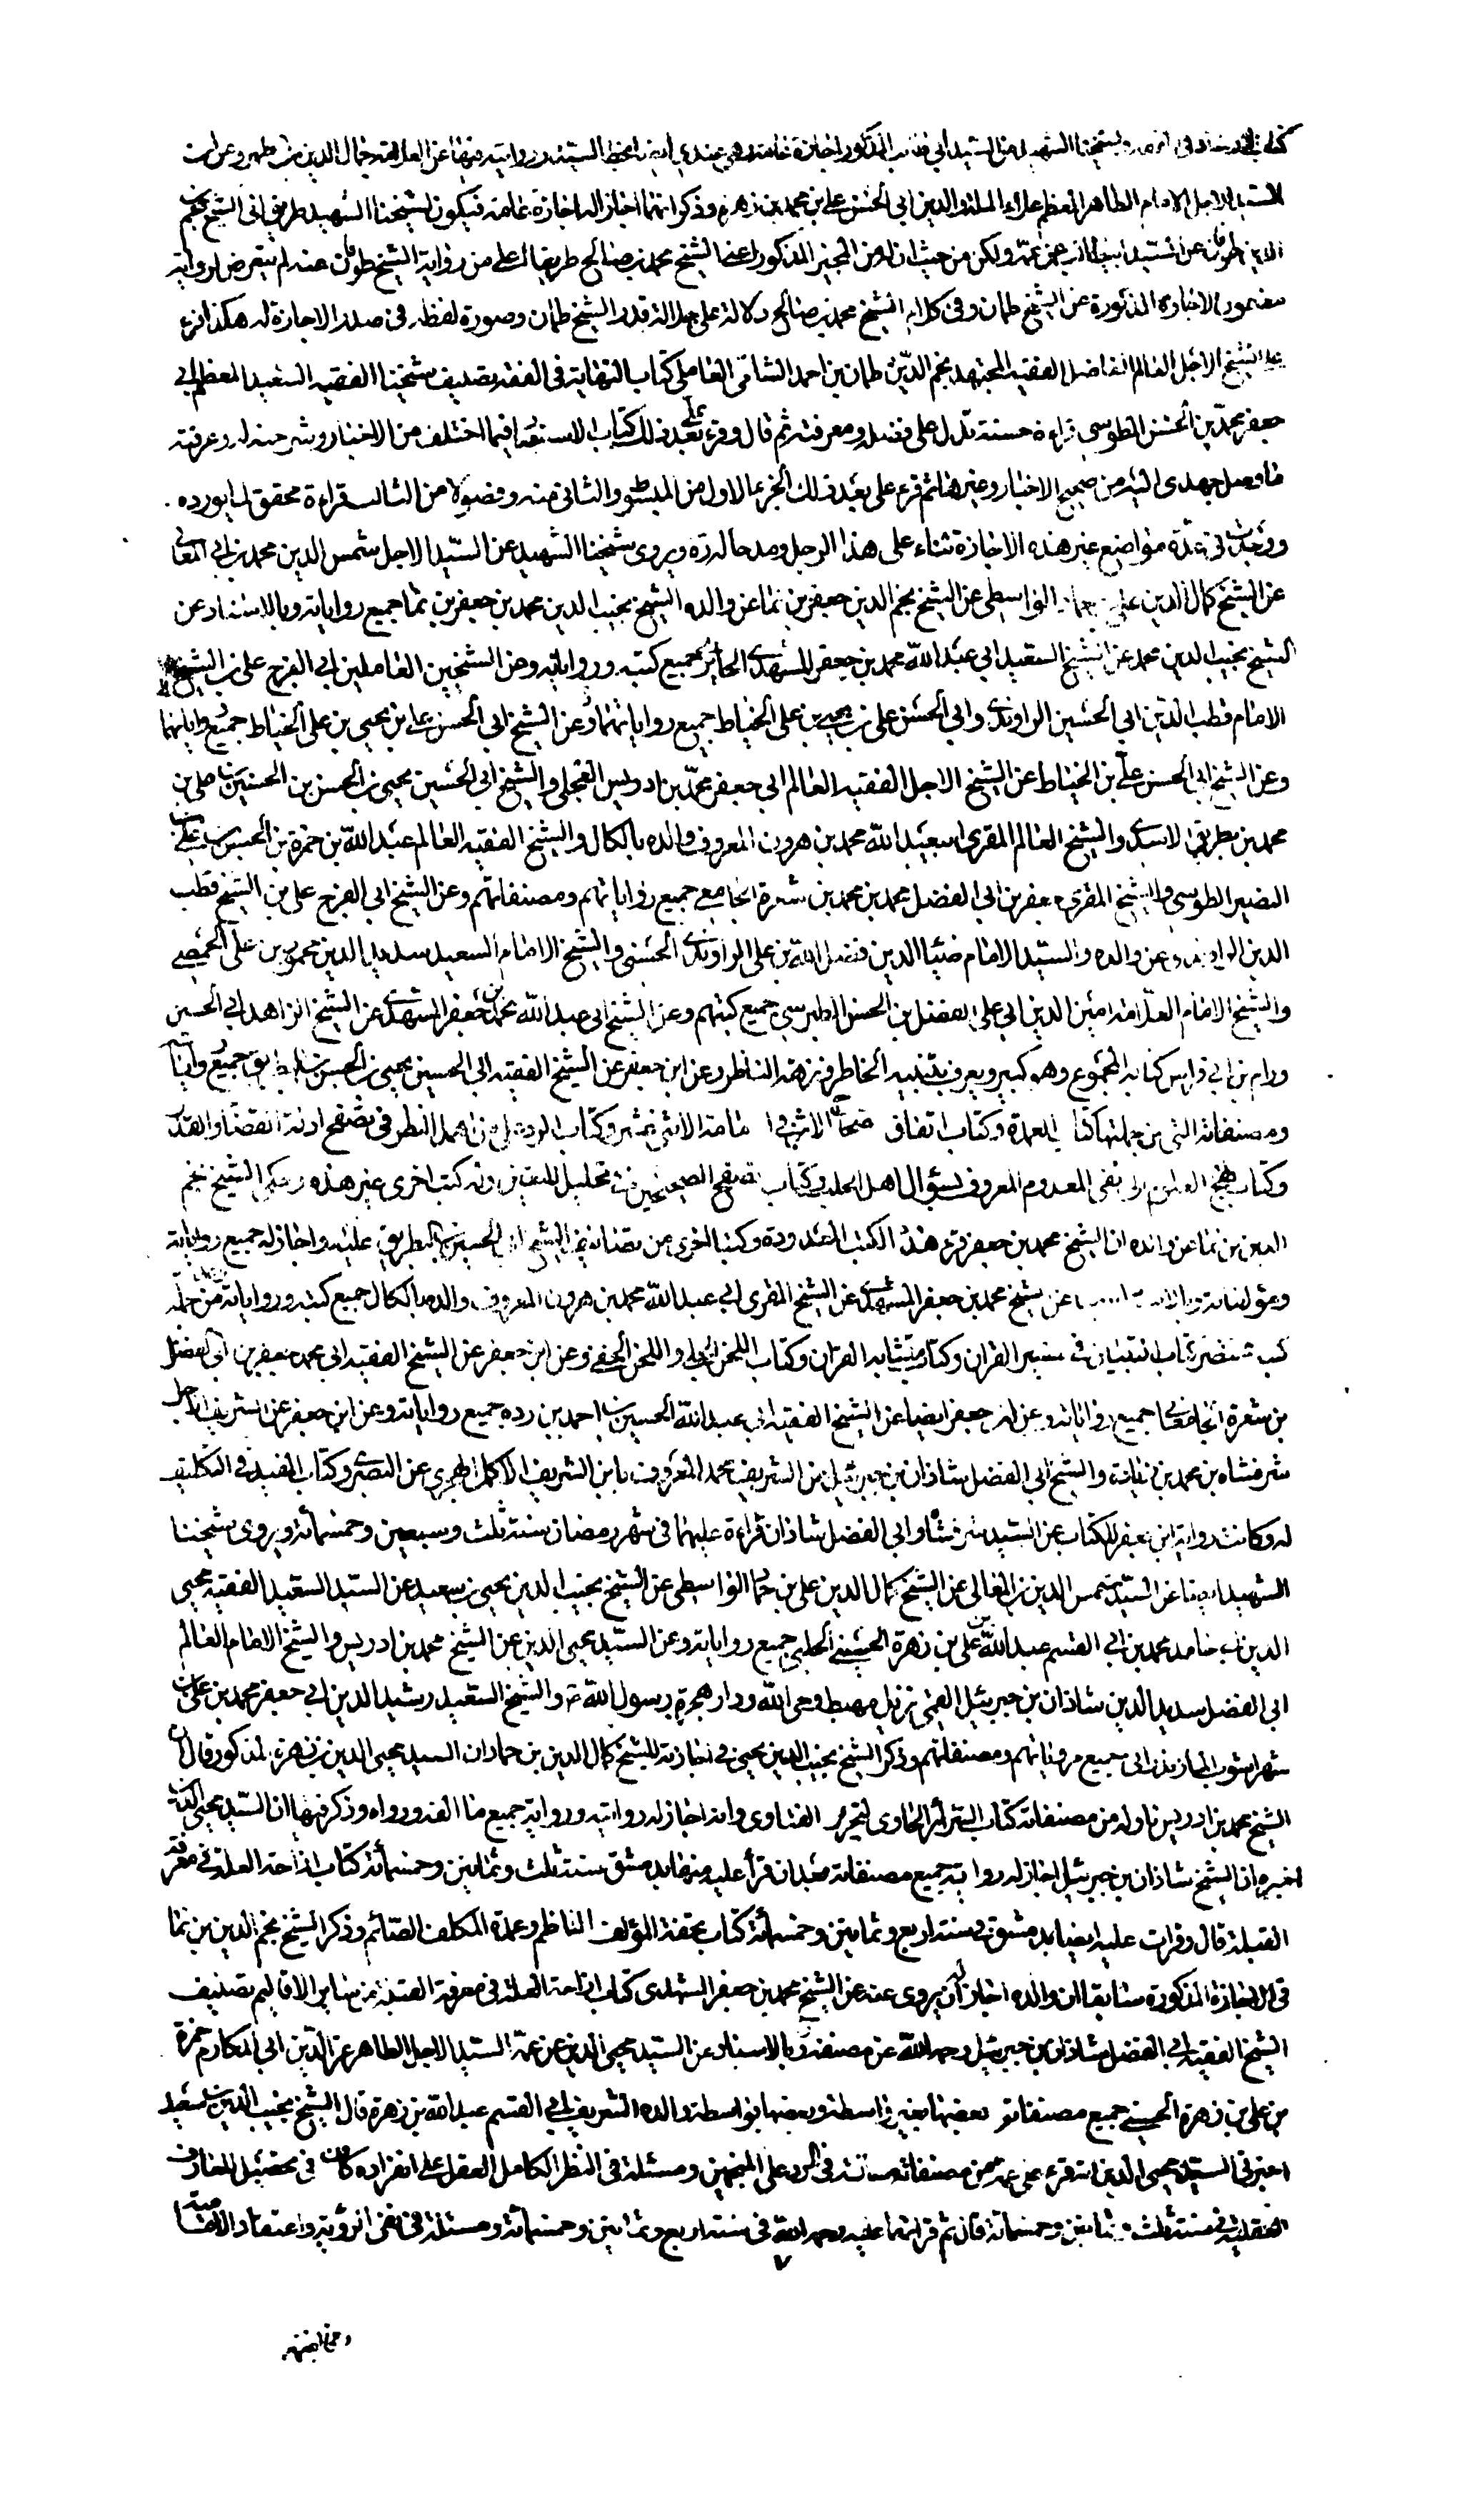 ولشيخنا الشهيد من السيد ابي طالب المذكور اجازة خاصة وهي عندي ايضا بخط السيد روايته فيها عن العلامة جمال الدين بن مطهر وعن
السيد الاجل الامام الطاهر المعظم علاء الملة والدين ابي الحسن علي بن محمد بن زهرة وذكر انهما اجازا له اجازة عامة فيكون لشيخنا الشهيد طريق الى الشيخ نجم
الدين طمان عن السيد عن عمه ولكن من حيث ان المجيز المذكور اعني الشيخ محمد بن صالح طريقه اعلى من رواية الشيخ طمان عنه لم نتعرض لروايته
الاجازة المذكورة عن الشيخ طمان وفي كلام الشيخ محمد بن صالح دلالة على جلالة قدر الشيخ طمان وصورة لفظه في صدر الاجازة له هكذا قرء
علي الشيخ الاجل العالم الفاضل الفقيه المجتهد نجم الدين طمان بن احمد الشامي العاملي كتاب النهاية في الفقه تصنيف شيخنا الفقيه السعيد المعظم ابي
جعفر محمد بن الحسن الطوسي قراءة حسنة تدل على فضله ومعرفته ثم قال وقرء علي بعد ذلك كتاب الاستبصار فيما اختلف من الاخبار وشرحته له وعرفته
ما وصل جهدي اليه من صحيح الاخبار وغيرها ثم قرء علي بعد ذلك الجزء الاول من المبسوط والثاني منه وفصولا من الثالث قراءة محقق لما يورده
ووجدت في عدة مواضع غير هذه الاجازة ثناء على هذا الرجل ومدحا له ره ويروي شيخنا الشهيد عن السيد الاجل شمس الدين محمد بن ابي المعالي
عن الشيخ كمال الدين علي بن حماد الواسطي عن الشيخ نجم الدين جعفر بن نما عن والده الشيخ نجيب الدين محمد بن جعفر بن نما جميع رواياته وبالاسناد عن
الشيخ نجيب الدين محمد عن الشيخ السعيد ابي عبد الله محمد بن جعفر المشهدي الحائري جميع كتبه ورواياته وعن الشيخين الفاضلين ابي الفرج علي بن الشيخ
الامام قطب الدين ابي الحسين الراوندي وابي الحسن علي بن يحيى بن علي الخياط جميع رواياتهما وعن الشيخ ابي الحسن علي بن يحيى بن علي الخياط جميع رواياتهما
وعن الشيخ ابي الحسن علي بن الخياط عن الشيخ الاجل الفقيه العالم ابي جعفر محمد بن ادريس العجلي والشيخ ابي الحسين يحيى بن الحسن بن الحسين بن علي بن
محمد بن بطريق الاسدي والشيخ العالم المقري ابي عبد الله محمد بن هرون المعروف والده بالكال والشيخ الفقيه العالم عبد الله بن حمزة بن الحسين بن علي
النصير الطوسي والشيخ المقري جعفر بن ابي الفضل محمد بن محمد بن شعرة الجامعي جميع رواياتهم ومصنفاتهم وعن الشيخ ابي الفرج علي بن الشيخ قطب
الدين الراوندي عن والده والسيد الامام ضياء الدين فضل الله بن علي الراوندي الحسني والشيخ الامام السعيد سديد الدين محمود بن علي الحمصي
والشيخ الامام العلامة امين الدين ابي علي الفضل بن الحسن الطبرسي جميع كتبهم وعن الشيخ ابي عبد الله محمد بن جعفر المشهدي عن الشيخ الزاهد ابي الحسين
ورام بن ابي فراس كتابه المجموع وهو كبير ويعرف بتنبيه الخاطر ونزهة الناظر وعن ابن جعفر عن الشيخ الفقيه ابي الحسين يحيى بن الحسن بن البطريق جميع رواياته
ومصنفاته التي من جملتها كتاب العمدة وكتاب اتفاق صحاح الاثر في امامة الاثني عشر وكتاب الرد على اهل النظر في تصفح ادلة القضاء والقدر
وكتاب نهج العلوم الى نفي المعدوم المعروف بسؤال اهل حلب وكتاب تصفح الصحيحين في تحليل المتعتين وله كتب اخرى غير هذه وحكى الشيخ نجم
الدين بن نما عن والده ان الشيخ محمد بن جعفر قرء هذه الكتب المعدودة وكتبا اخرى من تصانيف الشيخ ابي الحسين بن البطريق عليه واجاز له جميع رواياته
ومؤلفاته وبالاسناد عن الشيخ محمد بن جعفر المشهدي عن الشيخ المقري ابي عبد الله محمد بن هرون المعروف والده بالكال جميع كتبه ورواياته فمن جملة
كتبه مختصر كتاب التبيان في تفسير القران وكتاب متشابه القران وكتاب اللحن الجلي واللحن الخفي وعن ابن جعفر عن الشيخ الفقيه ابي محمد جعفر بن ابي الفضل
بن شعرة الجامعي جميع رواياته وعن ابن جعفر ايضا عن الشيخ الفقيه ابي عبد الله الحسين بن احمد بن رده جميع رواياته وعن ابن جعفر عن الشريف الاجل
شرفشاه بن محمد بن زيارة والشيخ ابي الفضل شاذان بن جبرئيل عن الشريف محمد المعروف بابن الشريف الاكمل عن البصري وكتاب المفيد في التكليف
له وكانت رواية ابن جعفر للكتاب عن السيد شرفشاه وابي الفضل شاذان قراءة عليهما في شهر رمضان سنة ثلث وسبعين وخمسمائة ويروي شيخنا
الشهيد ايضا عن السيد شمس الدين بن ابي المعالي عن الشيخ كمال الدين علي بن حماد الواسطي عن الشيخ نجيب الدين يحيى بن سعيد عن السيد السعيد الفقيه محيى
الدين ابي حامد محمد بن ابي القسم عبد الله بن علي بن زهرة الحسيني الحلبي جميع رواياته وعن السيد محيى الدين عن الشيخ محمد بن ادريس والشيخ الامام العالم
ابي الفضل سديد الدين شاذان بن جبرئيل القمي نزيل مهبط وحي الله ودار هجرة رسول الله ص والشيخ السعيد رشيد الدين ابي جعفر محمد بن علي بن
شهراشوب المازندراني جميع مروياتهم ومصنفاتهم وذكر الشيخ نجيب الدين يحيى في اجازته للشيخ كمال الدين بن حماد ان السيد محيى الدين بن زهرة المذكور قال ان
الشيخ محمد بن ادريس ناوله من مصنفاته كتاب السرائر الحاوي لتحرير الفتاوى وانه اجاز له روايته ورواية جميع ما الفه ورواه وذكر فيها ان السيد محيى الدين
اخبره ان الشيخ شاذان بن جبرئيل اجاز له رواية جميع مصنفاته بعد ان قرأ عليه منها بدمشق سنة ثلث وثمانين وخمسمائة كتاب ازاحة العلة في معرفة
القبلة قال وقرات عليه ايضا بدمشق في سنة اربع وثمانين وخمسمائة كتاب تحفة المؤلف الناظم وعمدة المكلف الصائم وذكر الشيخ نجم الدين بن نما
في الاجازة المذكورة سابقا ان والده اجاز له ان يروي عنه عن الشيخ محمد بن جعفر المشهدي كتاب ازاحة العلة في معرفة القبلة من ساير الاقاليم تصنيف
الشيخ الفقيه ابي الفضل شاذان بن جبرئيل رحمه الله عن مصنفه وبالاسناد عن السيد محيى الدين عن عمه السيد الاجل الطاهر عز الدين ابي المكارم حمزة
بن علي بن زهرة الحسيني جميع مصنفاته بعضها بغير واسطة وبعضها بواسطة والده الشريف ابي القسم عبد الله بن زهرة قال الشيخ نجيب الدين بن سعيد
اخبرني السيد محيى الدين انه قرء على عمه من مصنفاته مسئلة في الرد على المنجمين ومسئلة في النظر الكامل العقل على انفراده كاف في تحصيل المعارف
العقلية في سنة ثلث وثمانين وخمسمائة قال ثم قراتهما عليه رحمه الله في سنة اربع وثمانين وخمسمائة ومسئلة في نفي الرؤية واعتقاد الامامية
٧